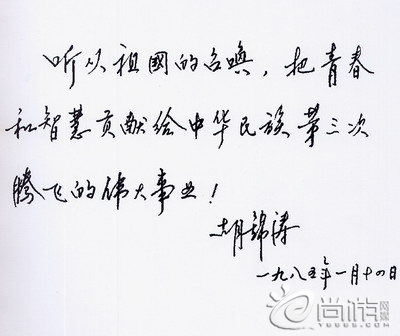 听从祖國的召唤，把青春
和智慧贡献给中华民族第三次
腾飞的伟大事业！
胡錦涛
一九八五年一月十四日
尚族网媒